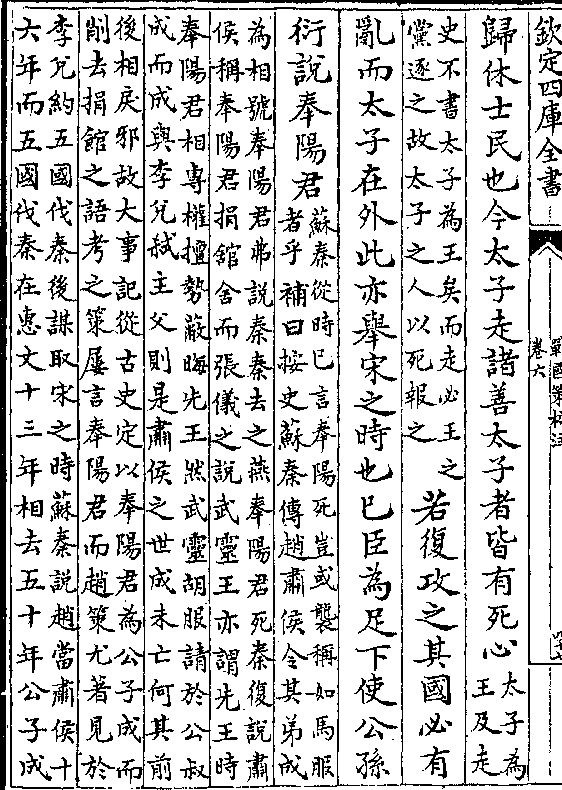 欽定四庫全書
戰國策校注
卷六
歸休士民也今太子走諸善太子者皆有死心太子為
王及走
史不書太子為王矣而走必王之
黨逐之故太子之人以死報之若復攻之其國必有
亂而太子在外此亦舉宋之時也已臣為足下使公孫
衍說奉陽君蘇秦從時已言奉陽死豈或襲稱如馬服
者乎補曰按史蘇秦傳趙肅侯令其弟成
為相號奉陽君弗說秦秦去之燕奉陽君死秦復說肅
侯稱奉陽君捐舘舍而張儀之說武靈王亦謂先王時
奉陽君相專權擅勢蔽晦先王然武靈胡服請於公叔
成而成與李兌弑主父則是肅侯之世成未亡何其前
後相戾邪故大事記從古史定以奉陽君為公子成而
削去捐館之語考之策屢言奉陽君而趙策尤著見於
李兌約五國伐秦後謀取宋之時蘇秦說趙當肅侯十
六年而五國伐秦在惠文十三年相去五十年公子成